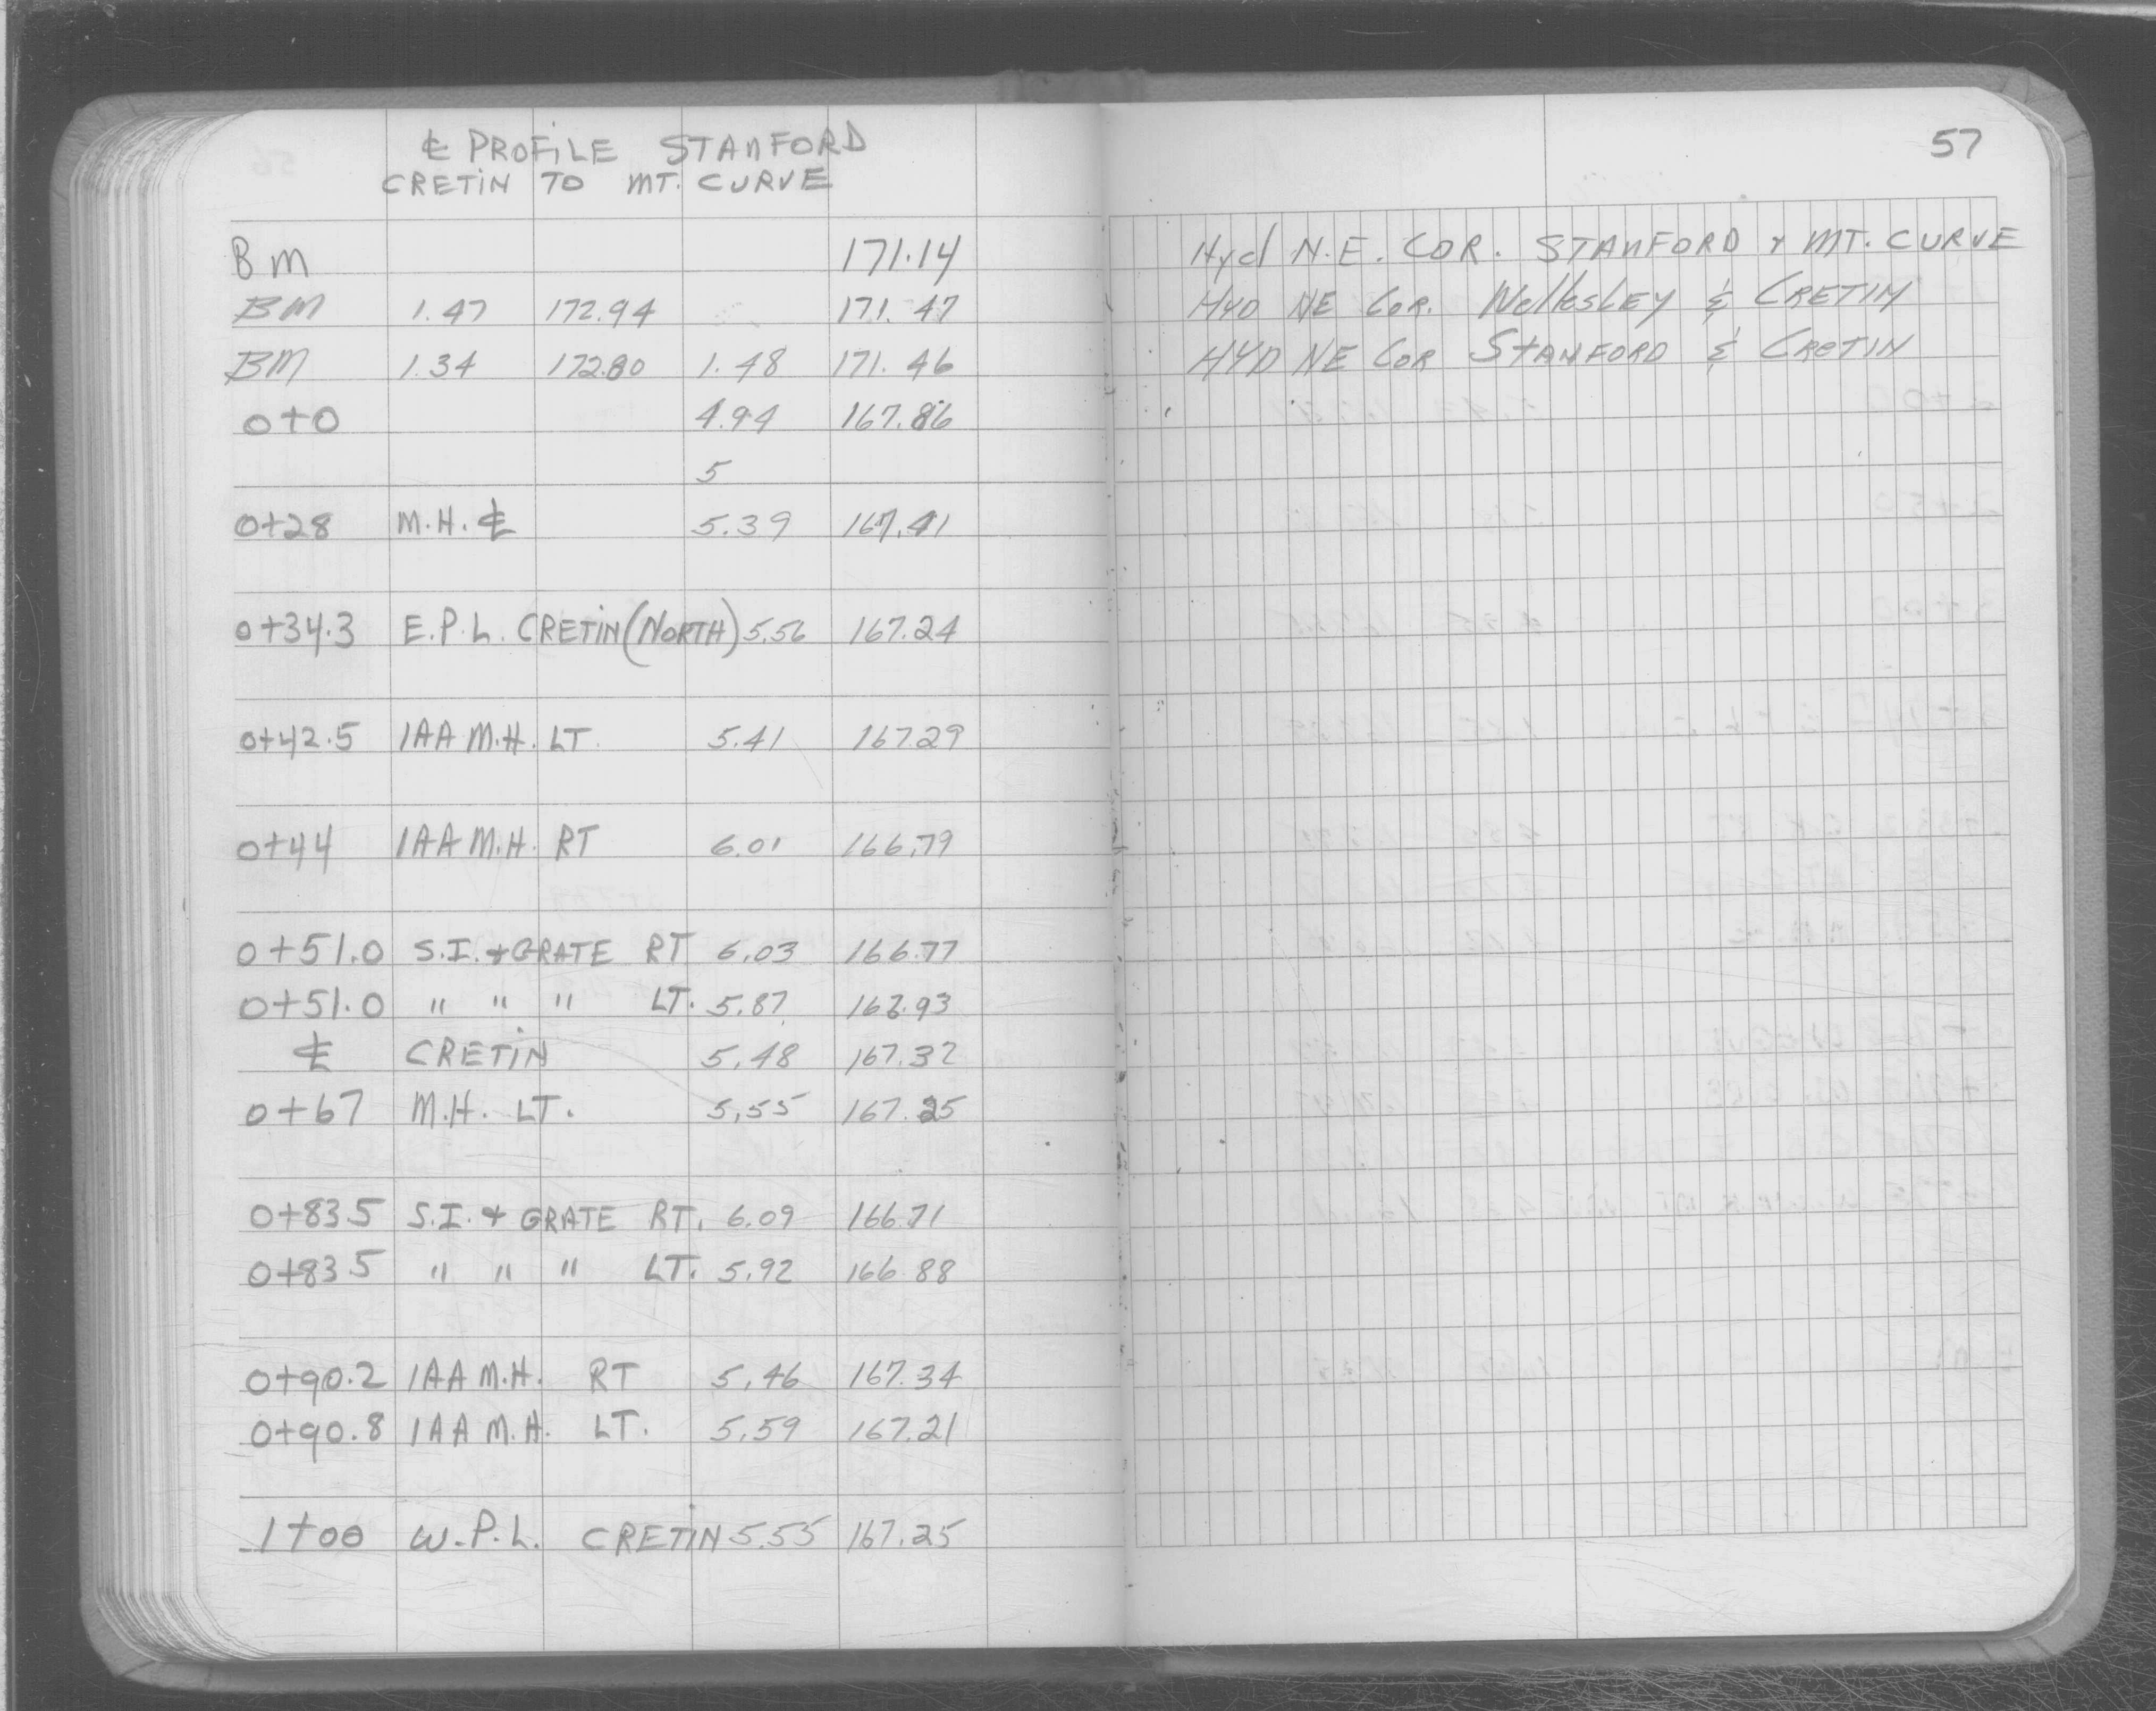 ℄ PROFILE STANFORD
CRETIN TO MT. CURVE
57
BM 171.14 Hyd N.E. COR. STANFORD & MT. CURVE
BM 1.47 172.94 171.47 HYD NE COR. Wellesley & CRETIN
BM 1.34 172.80 1.48 171.46 HYD NE COR STANFORD & CRETIN
0+0 4.94 167.86
5
0+28 M.H. ℄ 5.39 167.41
0+34.3 E.P.L. CRETIN (NORTH) 5.56 167.24
0+42.5 1AA M.H. LT. 5.41 167.29
0+44 1AA M.H. RT 6.01 166.79
0+51.0 S.I. & GRATE RT 6.03 166.77
0+51.0 " " " LT. 5.87 166.93
℄ CRETIN 5.48 167.32
0+67 M.H. LT. 5.55 167.25
0+83.5 S.I. & GRATE RT. 6.09 166.71
0+83.5 " " " LT. 5.92 166.88
0+90.2 1AA M.H. RT 5.46 167.34
0+90.8 1AA M.H. LT. 5.59 167.21
1+00 W.P.L. CRETIN 5.55 167.25